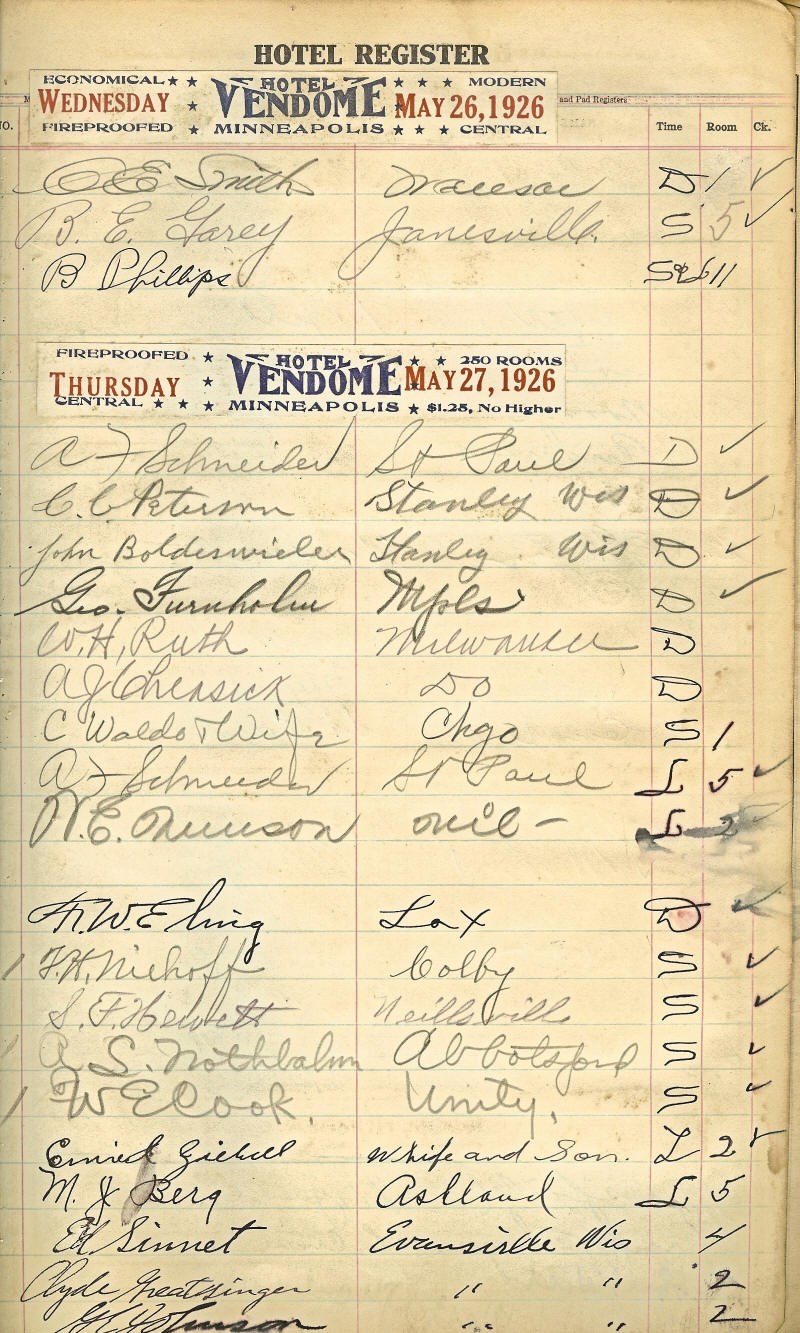 HOTEL REGISTER
ECONOMICAL HOTEL MODERN
WEDNESDAY VENDOME MAY 26, 1926
FIREPROOFED MINNEAPOLIS CENTRAL
and Pad Registers
NO. Time Room Ck.
E Smith D 1 ✓
B. E. Garey Janesville. S 5 ✓
B Phillips 11
FIREPROOFED HOTEL 250 ROOMS
THURSDAY VENDOME MAY 27, 1926
CENTRAL MINNEAPOLIS $1.25, No Higher
A F Schneider St Paul D ✓
C. C. Peterson Stanley Wis D ✓
John Boldeswieler Stanley Wis D ✓
Geo. Furnholm Mpls D ✓
W. H. Ruth Milwaukee D
A J Cheasick Do D
C Waldo & Wife Chgo S 1
A F Schneider St Paul L 5 ✓
W. E. Munson Mil - L 2 ✓
W. Eling Lax D ✓
F. H. Niehoff Colby S ✓
S. F. Hewett Neillsville S ✓
A. S. Nothbahm Abbotsford S ✓
W E Cook. Unity. S ✓
Whife and Son. L 2 ✓
M. J. Berg Ashland L 5
Ed Sinnet Evansville Wis 4
Clyde Greatsinger " " 2
Johnson " " 2